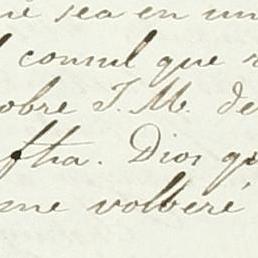 sea en un
consul que
sobre T. M. de
ftra. Dios qu
me volberé